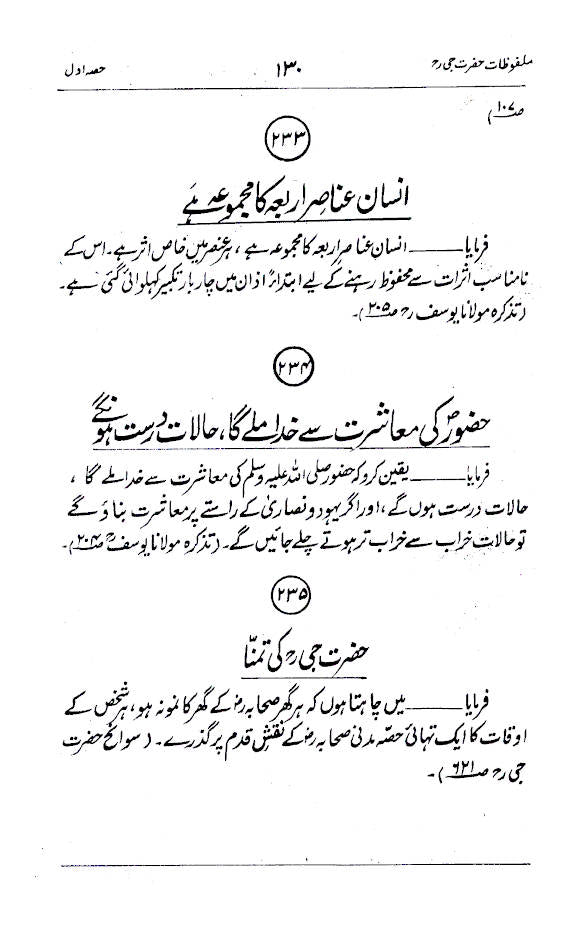 ملفوظات حضرت جی رح ۱۳۰ حصہ اول
ص ۱۰۷)
۲۳۳
انسان عناصر اربعہ کا مجموعہ ہے
فرمایا ــــــ انسان عناصر اربعہ کا مجموعہ ہے، ہر عنصر میں خاص اثر ہے۔ اس کے
نامناسب اثرات سے محفوظ رہنے کے لیے ابتداءً اذان میں چار بار تکبیر کہلوائی گئی ہے۔
(تذکرہ مولانا یوسف رح ص ۲۰۵)۔
۲۳۴
حضورؐ کی معاشرت سے خدا ملے گا، حالات درست ہونگے
فرمایا ــــــ یقین کرو کہ حضور صلی اللہ علیہ وسلم کی معاشرت سے خدا ملے گا،
حالات درست ہوں گے، اور اگر یہود و نصاریٰ کے راستے پر معاشرت بناؤ گے
تو حالات خراب سے خراب تر ہوتے چلے جائیں گے۔ (تذکرہ مولانا یوسف رح ص ۲۰۴)۔
۲۳۵
حضرت جی رح کی تمنّا
فرمایا ــــــ میں چاہتا ہوں کہ ہر گھر صحابہ رض کے گھر کا نمونہ ہو، ہر شخص کے
اوقات کا ایک تہائی حصّہ مدنی صحابہ رض کے نقش قدم پر گذرے۔ (سوانح حضرت
جی رح ص ۶۲۱)۔